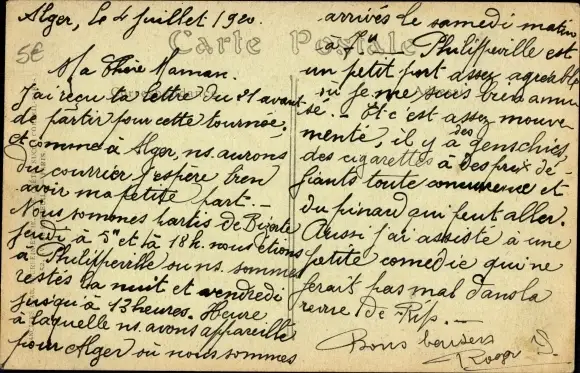 Alger, le 4 Juillet 1920.
5€
Carte Postale
Ma Chère Maman.
J'ai reçu ta lettre du 21 avant
de partir pour cette tournée.
et comme à Alger, ns. aurons
du courrier j'espère bien
avoir ma petite part. -
Nous sommes partis de Bizerte
jeudi à 5h et à 18h. nous étions
à Philippeville ou ns. sommes
restés la nuit et vendredi
jusqu'à 13 heures. Heure
à laquelle ns. avons appareillé
pour Alger où nous sommes
arrivés le samedi matin
à 7h Philippeville est
un petit port assez agréable
ou je me suis bien amu
sé. - Et c'est assez mouve-
menté, il y a des gens chics,
des cigarettes à des prix dé-
fiants toute concurrence et
du pinard qui peut aller.
Aussi j'ai assisté à une
petite comedie qui ne
ferait pas mal dans la
revue de Rip. -
Bons baisers
Roger